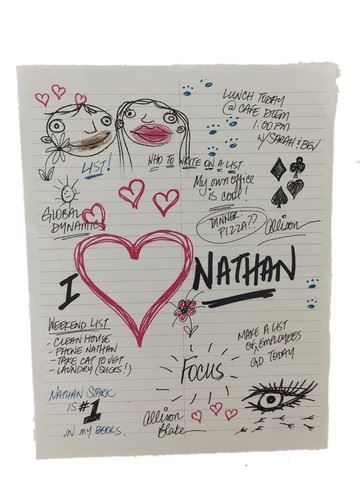 LUNCH TODAY
@ CAFE DIEM
1:00 PM
W/ SARAH & BEV
LIST!
WHO TO WRITE ON A LIST
My own office
is cool!
GLOBAL
DYNAMICS
DINNER-
PIZZA??
Allison
I
NATHAN
WEEKEND LIST
- CLEAN HOUSE
- PHONE NATHAN
- TAKE CAT TO VET
- LAUNDRY (SUCKS!)
FOCUS
MAKE A LIST
OF EMPLOYEES
GD TODAY
NATHAN STARK
IS #1
IN MY BOOKS.
Allison
Blake